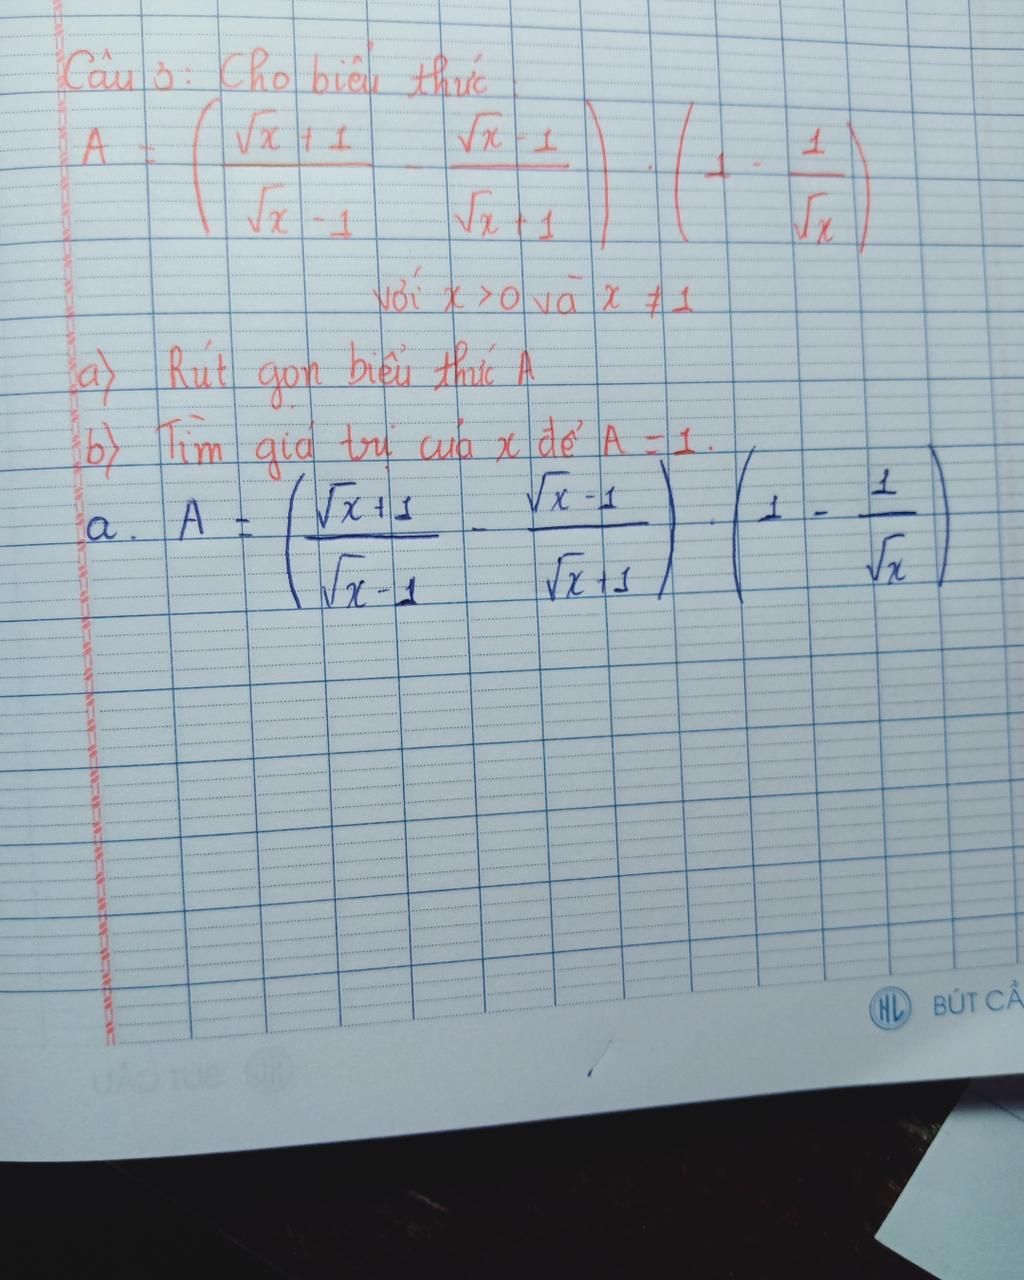 Câu 3: Cho biểu thức:
A = ( (√x + 1)/(√x - 1) - (√x - 1)/(√x + 1) ) . ( 1 - 1/√x )
với x > 0 và x ≠ 1
a) Rút gọn biểu thức A
b) Tìm giá trị của x để A = 1.
a. A = ( (√x + 1)/(√x - 1) - (√x - 1)/(√x + 1) ) . ( 1 - 1/√x )
HL BÚT CẢ